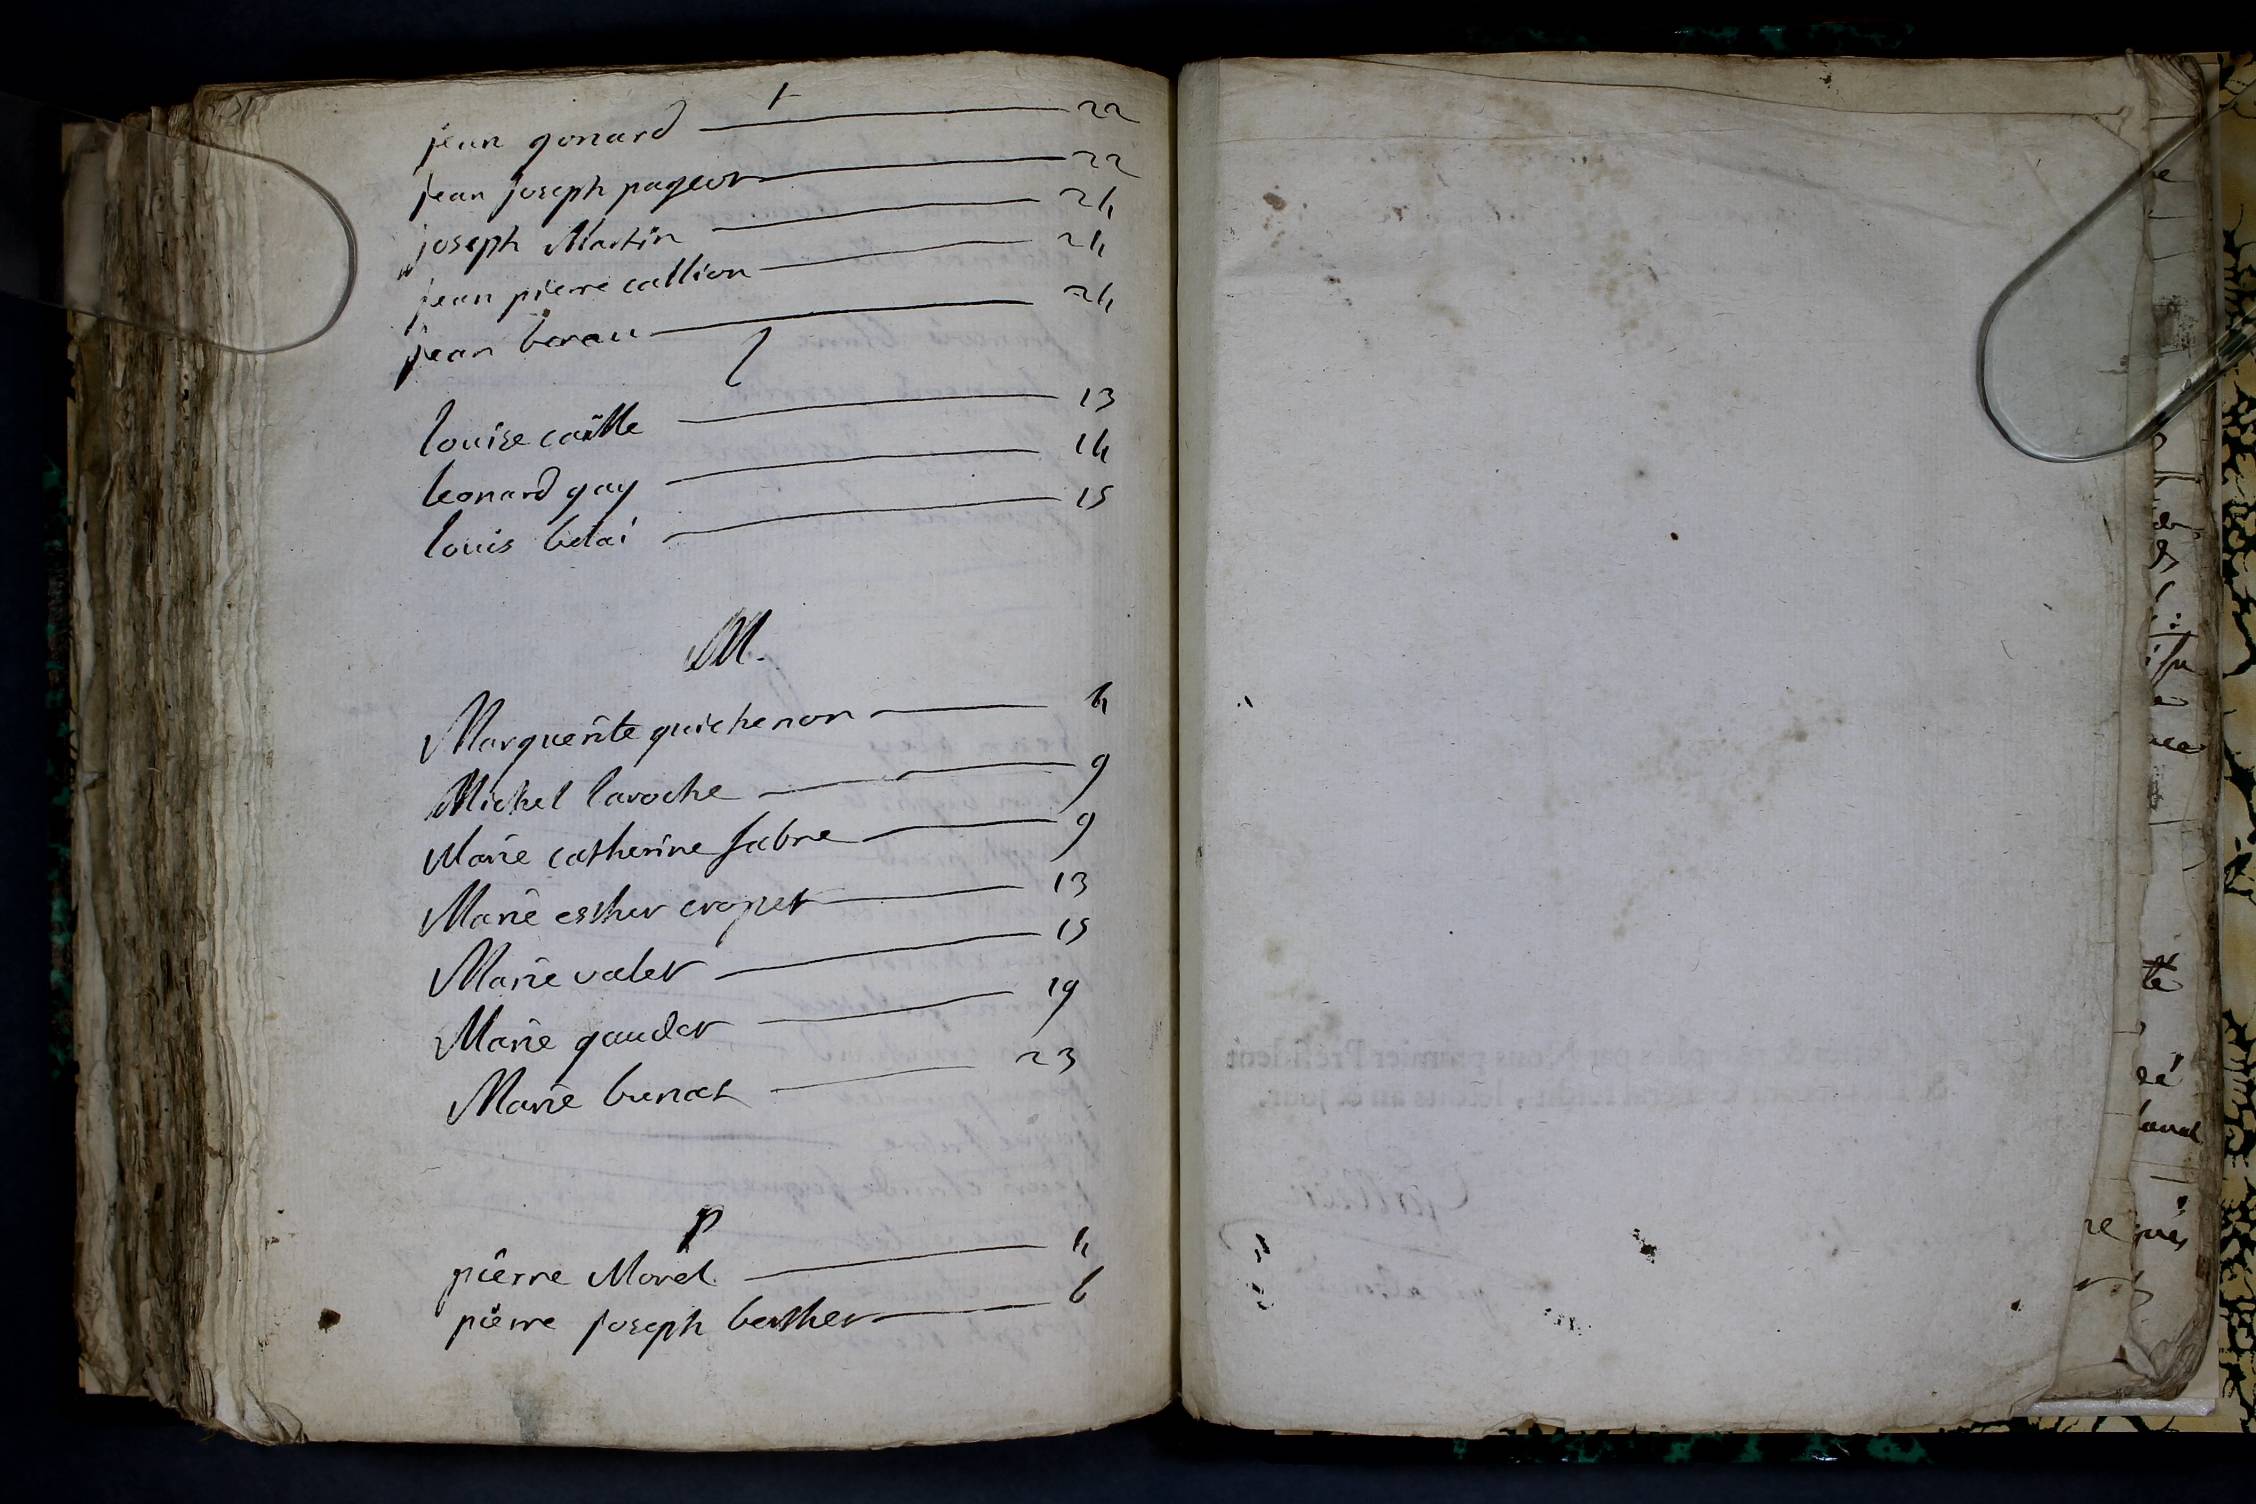 j
jean gonard 22
jean joseph pageot 22
joseph Martin 24
jean pierre callion 24
jean berau 24
l
louise caille 13
leonard gay 14
louis belai 15
M.
Marguerite guichenon 4
Michel laroche 9
Marie catherine fabre 9
Marie esther cropet 13
Marie valet 15
Marie gaudet 19
Marie bunat 23
p
pierre Morel 4
pierre joseph berthet 6